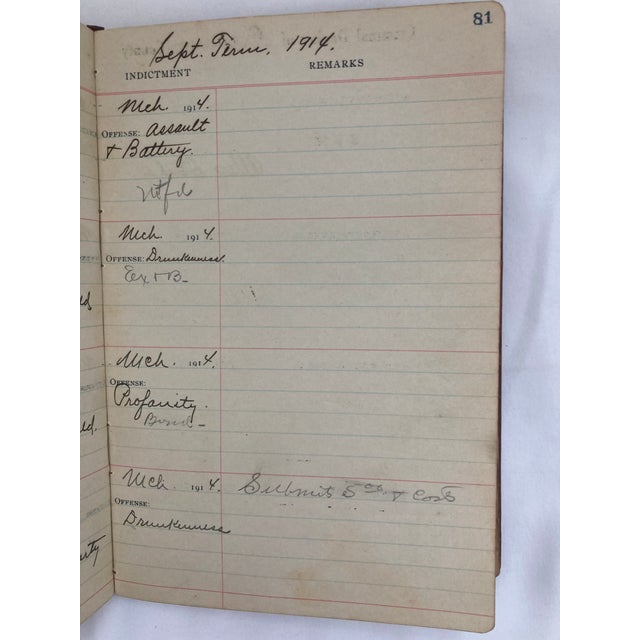 81
Sept. Term, 1914.
INDICTMENT REMARKS
Mch. 1914.
OFFENSE: Assault
+ Battery.
Mch. 1914.
OFFENSE: Drunkenness.
Ex + B-
Mch. 1914.
OFFENSE:
Profanity.
Bond -
Mch. 1914. Submits 5.00 + Costs
OFFENSE:
Drunkenness